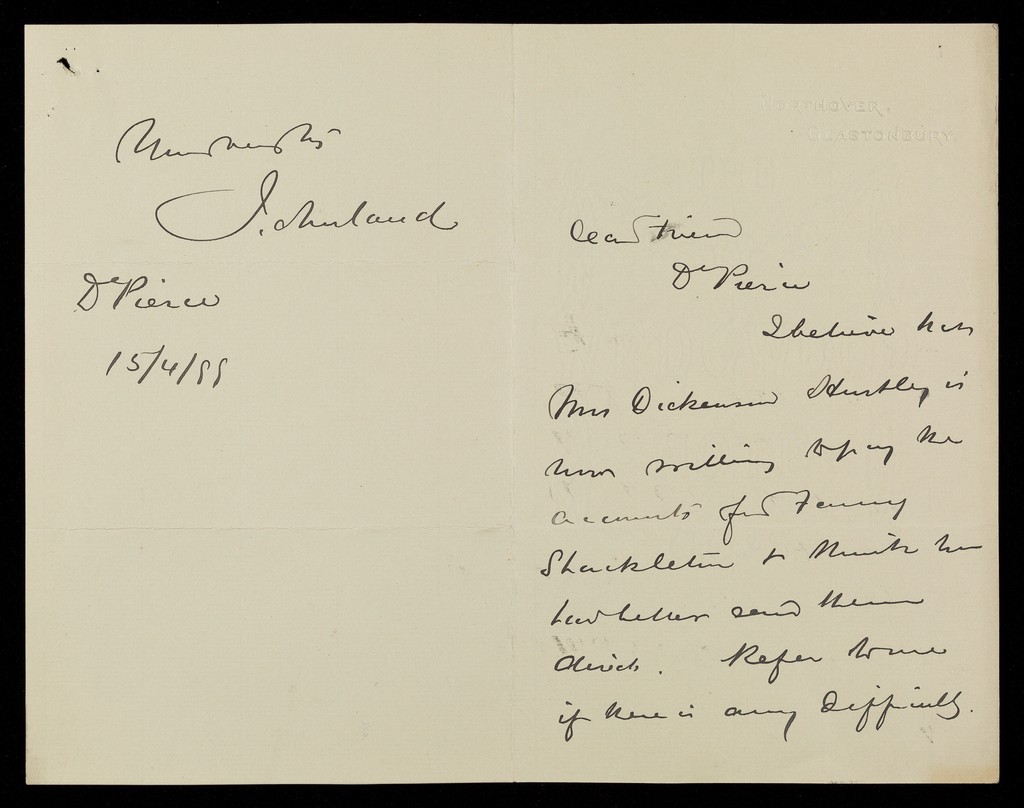 NORTHOVER.
GLASTONBURY.
Dear Friend
Dr Pierce
I believe that
Mrs Dickenson Huntley is
now willing to pay the
accounts for Fanny
Shackleton & think you
had better send them
direct. Refer to me
if there is any difficulty.
Yours truly
J. Morland
Dr Pierce
15/4/99